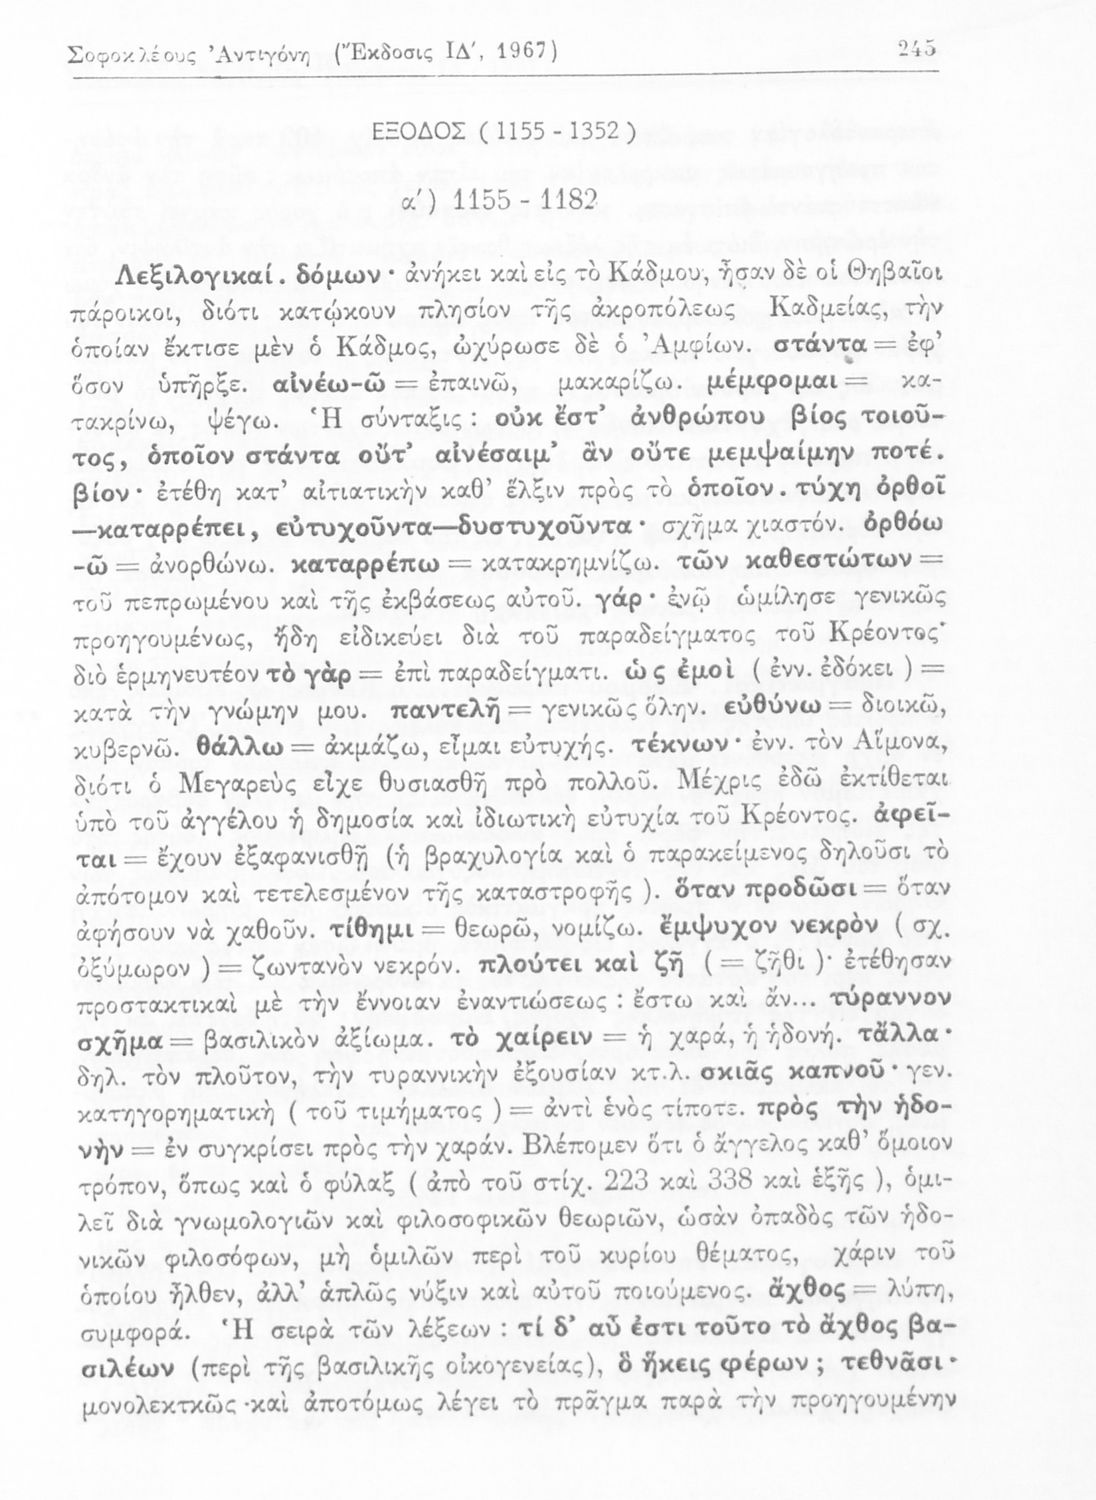 Σοφοκλέους Ἀντιγόνη (Ἔκδοσις ΙΔ′, 1967) 245
ΕΞΟΔΟΣ ( 1155 - 1352 )
α′) 1155 - 1182
Λεξιλογικαί. δόμων· ἀνήκει καὶ εἰς τὸ Κάδμου, ἦσαν δὲ οἱ Θηβαῖοι
πάροικοι, διότι κατῴκουν πλησίον τῆς ἀκροπόλεως Καδμείας, τὴν
ὁποίαν ἔκτισε μὲν ὁ Κάδμος, ὠχύρωσε δὲ ὁ Ἀμφίων. στάντα = ἐφ’
ὅσον ὑπῆρξε. αἰνέω-ῶ = ἐπαινῶ, μακαρίζω. μέμφομαι = κα-
τακρίνω, ψέγω. Ἡ σύνταξις : οὐκ ἔστ’ ἀνθρώπου βίος τοιοῦ-
τος, ὁποῖον στάντα οὔτ’ αἰνέσαιμ’ ἂν οὔτε μεμψαίμην ποτέ.
βίον· ἐτέθη κατ’ αἰτιατικὴν καθ’ ἕλξιν πρὸς τὸ ὁποῖον. τύχη ὀρθοῖ
—καταρρέπει, εὐτυχοῦντα—δυστυχοῦντα· σχῆμα χιαστόν. ὀρθόω
-ῶ = ἀνορθώνω. καταρρέπω = κατακρημνίζω. τῶν καθεστώτων =
τοῦ πεπρωμένου καὶ τῆς ἐκβάσεως αὐτοῦ. γάρ· ἐνῷ ὡμίλησε γενικῶς
προηγουμένως, ἤδη εἰδικεύει διὰ τοῦ παραδείγματος τοῦ Κρέοντος·
διὸ ἑρμηνευτέον τὸ γὰρ = ἐπὶ παραδείγματι. ὡς ἐμοὶ ( ἐνν. ἐδόκει ) =
κατὰ τὴν γνώμην μου. παντελῆ = γενικῶς ὅλην. εὐθύνω = διοικῶ,
κυβερνῶ. θάλλω = ἀκμάζω, εἶμαι εὐτυχής. τέκνων· ἐνν. τὸν Αἵμονα,
διότι ὁ Μεγαρεὺς εἶχε θυσιασθῆ πρὸ πολλοῦ. Μέχρις ἐδῶ ἐκτίθεται
ὑπὸ τοῦ ἀγγέλου ἡ δημοσία καὶ ἰδιωτικὴ εὐτυχία τοῦ Κρέοντος. ἀφεῖ-
ται = ἔχουν ἐξαφανισθῆ (ἡ βραχυλογία καὶ ὁ παρακείμενος δηλοῦσι τὸ
ἀπότομον καὶ τετελεσμένον τῆς καταστροφῆς ). ὅταν προδῶσι = ὅταν
ἀφήσουν νὰ χαθοῦν. τίθημι = θεωρῶ, νομίζω. ἔμψυχον νεκρὸν ( σχ.
ὀξύμωρον ) = ζωντανὸν νεκρόν. πλούτει καὶ ζῆ ( = ζῆθι )· ἐτέθησαν
προστακτικαὶ μὲ τὴν ἔννοιαν ἐναντιώσεως : ἔστω καὶ ἄν... τύραννον
σχῆμα = βασιλικὸν ἀξίωμα. τὸ χαίρειν = ἡ χαρά, ἡ ἡδονή. τἄλλα·
δηλ. τὸν πλοῦτον, τὴν τυραννικὴν ἐξουσίαν κτ.λ. σκιᾶς καπνοῦ· γεν.
κατηγορηματικὴ ( τοῦ τιμήματος ) = ἀντὶ ἑνὸς τίποτε. πρὸς τὴν ἡδο-
νὴν = ἐν συγκρίσει πρὸς τὴν χαράν. Βλέπομεν ὅτι ὁ ἄγγελος καθ’ ὅμοιον
τρόπον, ὅπως καὶ ὁ φύλαξ ( ἀπὸ τοῦ στίχ. 223 καὶ 338 καὶ ἑξῆς ), ὁμι-
λεῖ διὰ γνωμολογιῶν καὶ φιλοσοφικῶν θεωριῶν, ὡσὰν ὀπαδὸς τῶν ἡδο-
νικῶν φιλοσόφων, μὴ ὁμιλῶν περὶ τοῦ κυρίου θέματος, χάριν τοῦ
ὁποίου ἦλθεν, ἀλλ’ ἁπλῶς νύξιν καὶ αὐτοῦ ποιούμενος. ἄχθος = λύπη,
συμφορά. Ἡ σειρὰ τῶν λέξεων : τί δ’ αὖ ἐστι τοῦτο τὸ ἄχθος βα-
σιλέων (περὶ τῆς βασιλικῆς οἰκογενείας), ὃ ἥκεις φέρων ; τεθνᾶσι·
μονολεκτκῶς ·καὶ ἀποτόμως λέγει τὸ πρᾶγμα παρὰ τὴν προηγουμένην